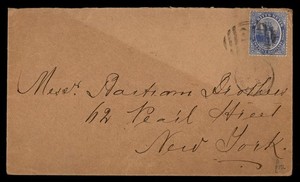 Messrs. Bartram Brothers
62 Pearl Street
New York.